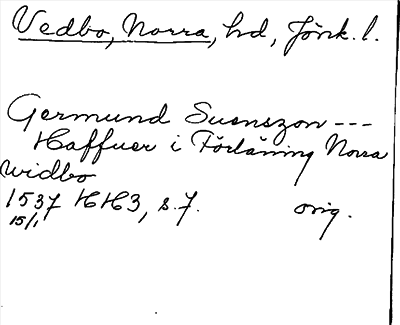 Vedbo, Norra, hd, Jönk. l.
Germund Suenszon ---
Haffuer i Förläning Norra
widbo
1537 HH3, s. 7. orig.
15/1